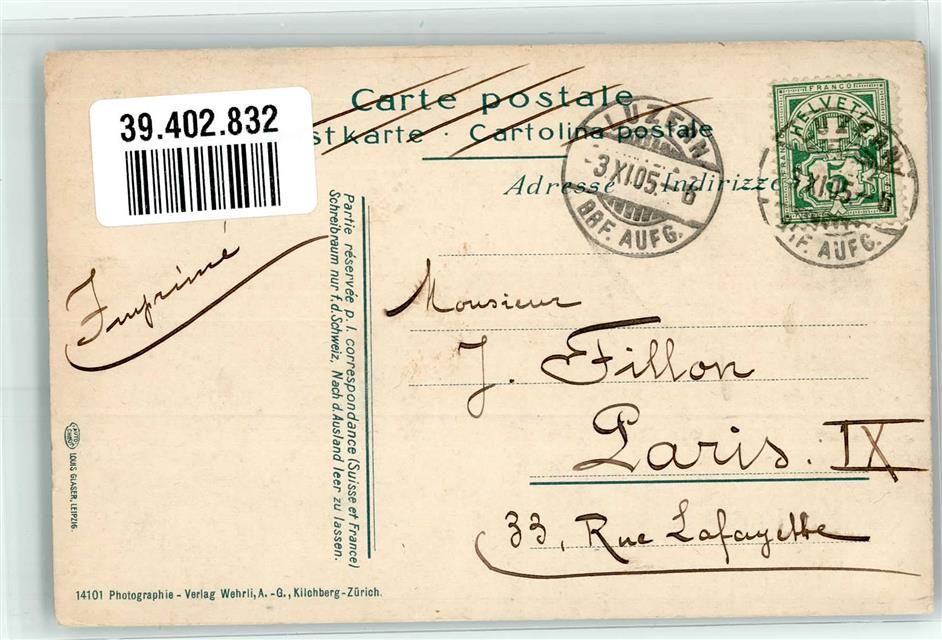 39.402.832
Carte postale
stkarte · Cartolina postale
Adresse Indirizzo
LUZERN
-3.XI.05.
BRF. AUFG.
FRANCO
HELVETIA
5
LUZERN
XI.05
BRF. AUFG.
Partie réservée p. l. correspondance (Suisse et France)
Schreibraum nur f. d. Schweiz, Nach d. Ausland leer zu lassen.
Imprimé
Monsieur
J. Fillon
Paris. IX
33, Rue Lafayette
LOUIS GLASER, LEIPZIG.
14101 Photographie - Verlag Wehrli, A. - G., Kilchberg - Zürich.